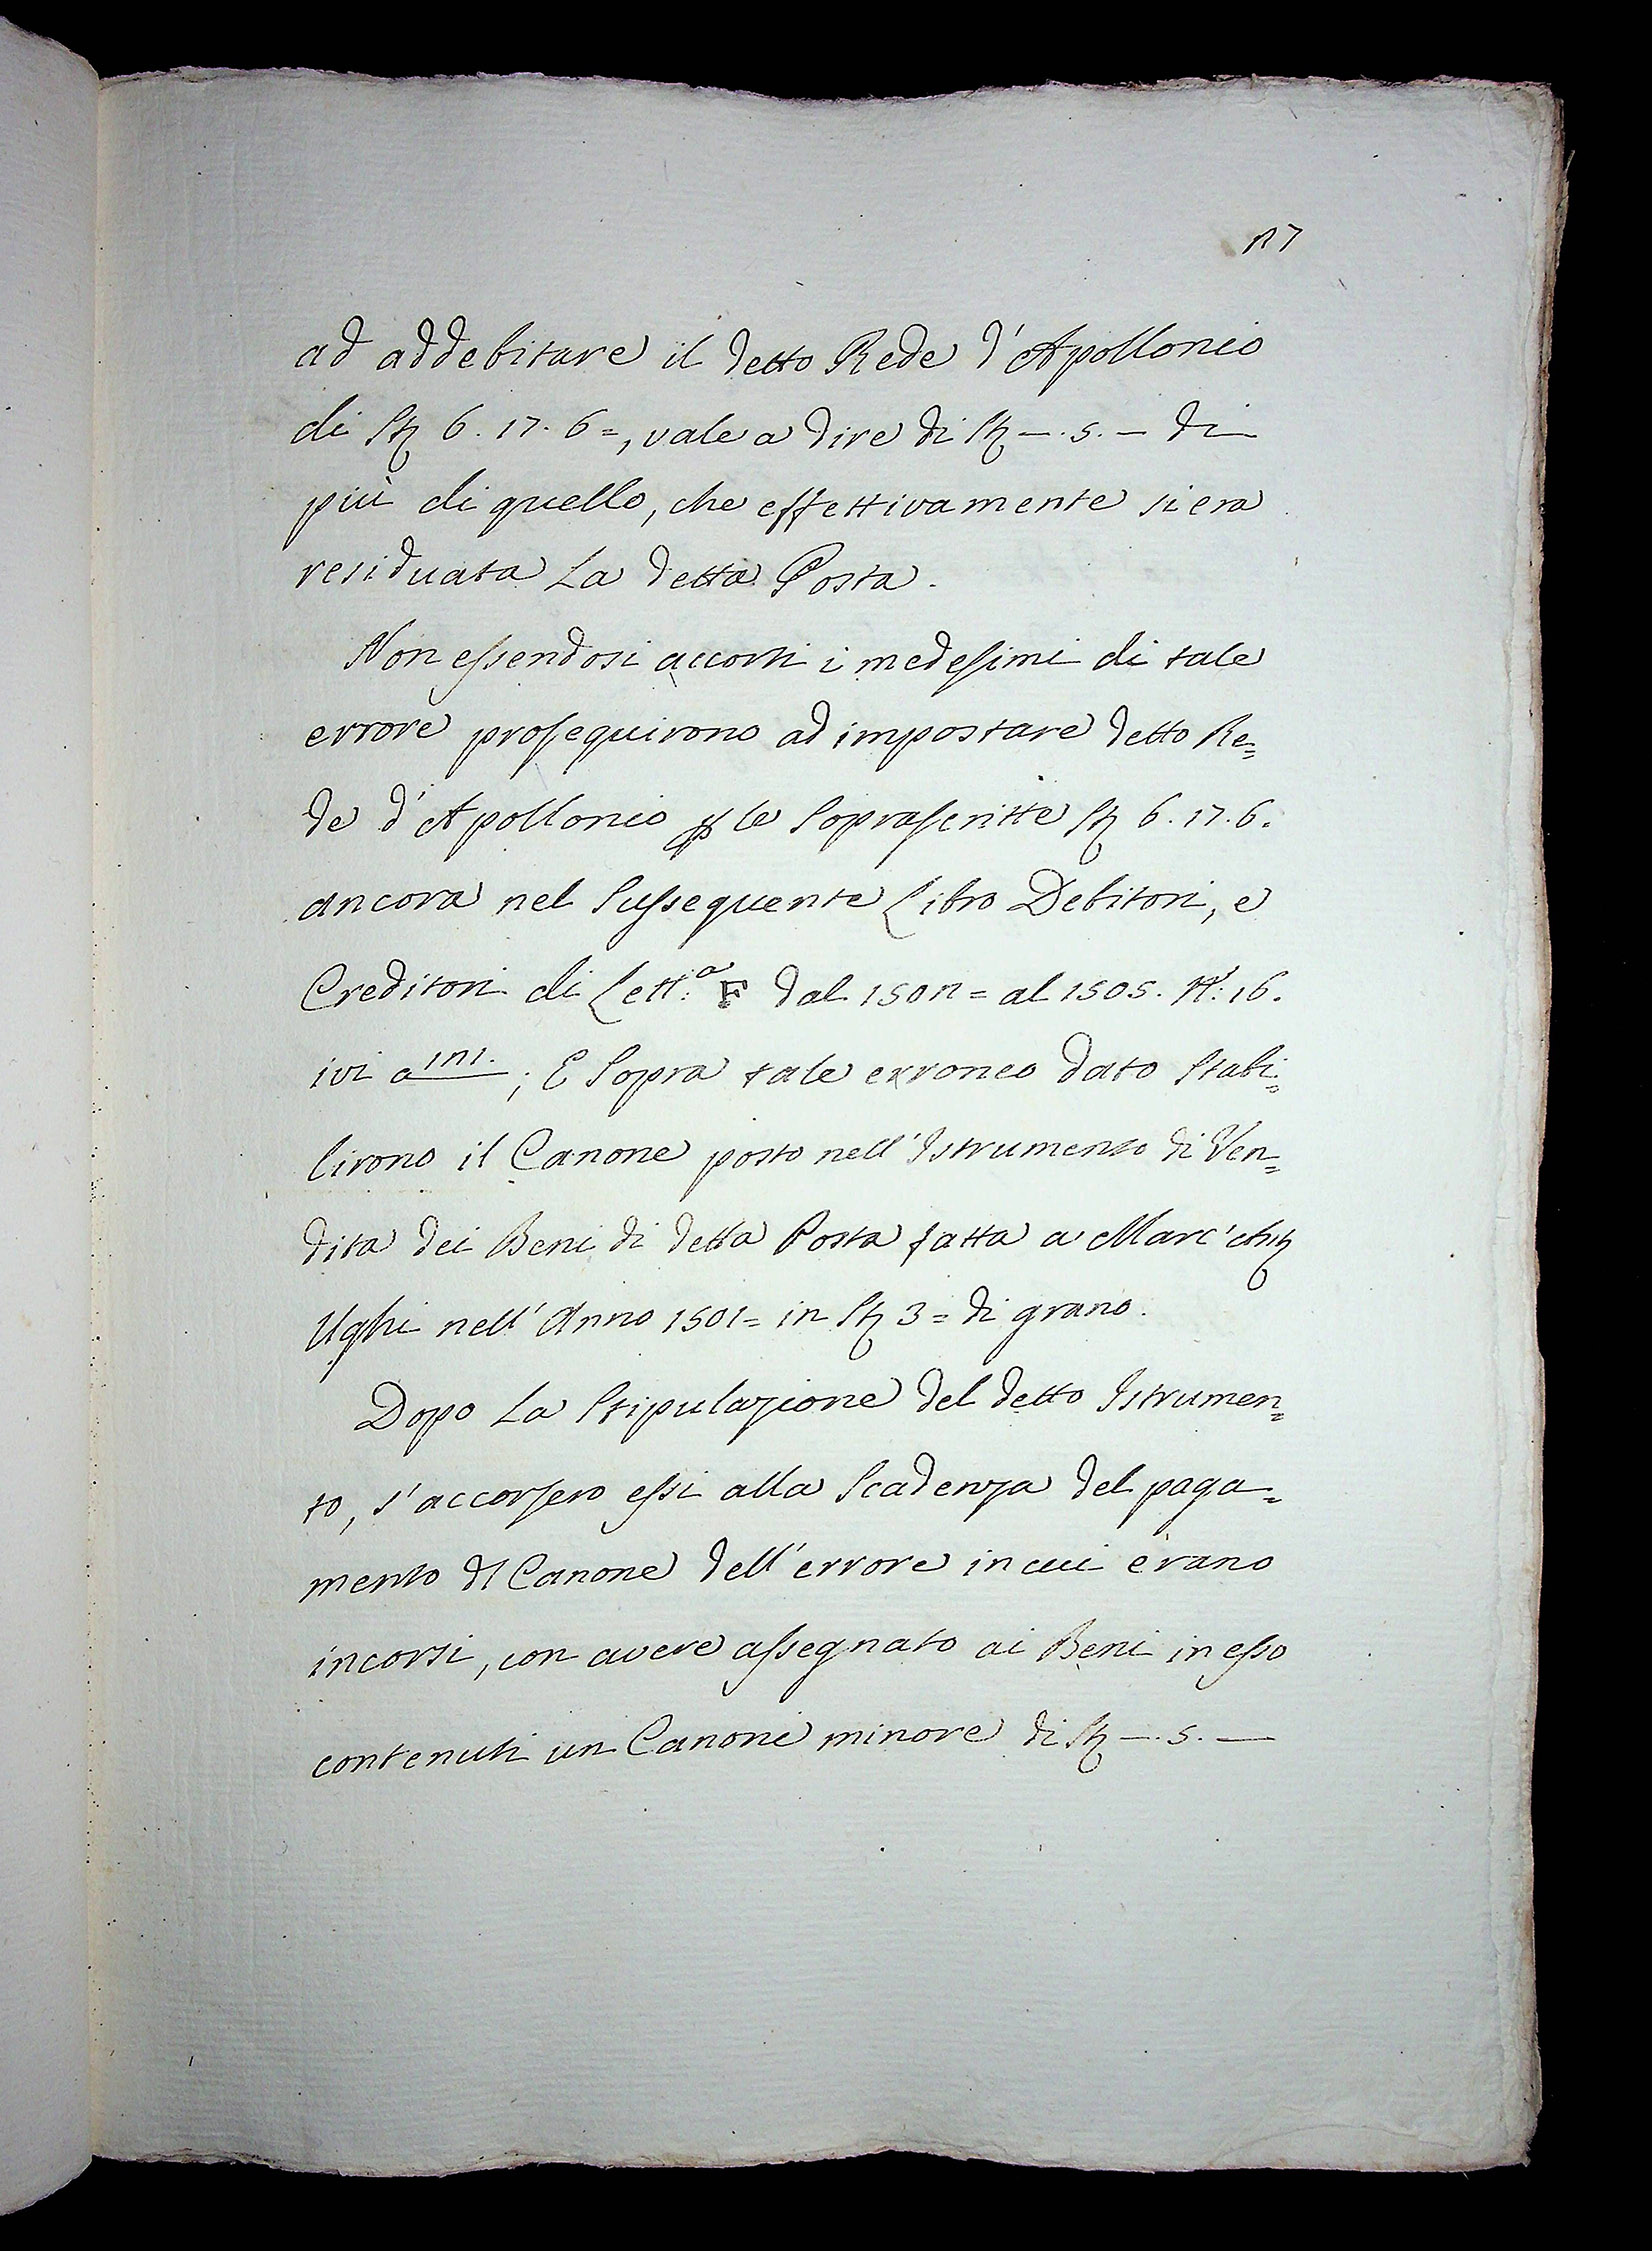 27
ad addebitare il detto Rede d'Apollonio
di St 6. 17. 6=, vale a dire di St —. 5. — di
più di quello, che effettivamente si era
residuata La detta Posta.
Non essendosi accorti i medesimi di tale
errore proseguirono ad impostare detto Re=
de d'Apollonio p le Soprascritte St 6. 17. 6.
ancora nel Sussequente Libro Debitori, e
Creditori di Lett:a F dal 1502= al 1505. N: 16.
ivi a 121.; E Sopra tale erroneo dato Stabi=
lirono il Canone posto nell'Istrumento di Ven=
dita dei Beni di detta Posta fatta a Marc'
Ughi nell'Anno 1501= in St 3= di grano.
Dopo La Stipulazione del detto Istrumen=
to, s'accorsero essi alla Scadenza del paga=
mento dl Canone dell'errore in cui erano
incorsi, con avere assegnato ai Beni in esso
contenuti un Canone minore di St —. 5. —